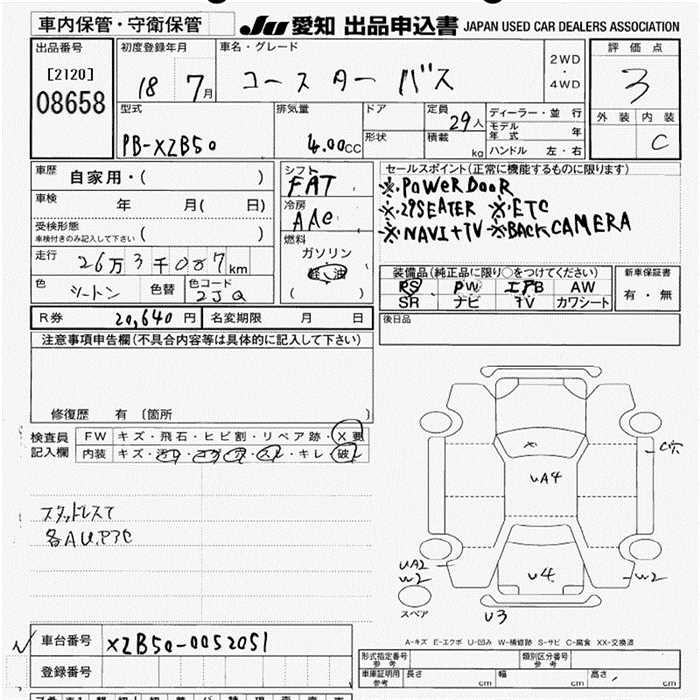 車内保管・守衛保管
JU 愛知 出品申込書 JAPAN USED CAR DEALERS ASSOCIATION
出品番号
[2120]
08658
初度登録年月
18 7月
車名・グレード
コースター バス
2WD
・
4WD
評価点
3
外装 内装
C
型式
PB-XZB50
排気量
4.00CC
ドア
形状
定員
29人
積載
kg
ディーラー・並行
モデル年式 年
ハンドル 左・右
車歴
自家用・( )
車検 年 月( 日)
受検形態
車検付きのみ記入して下さい ( )
走行 26万3千007km
色 ツートン 色替 色コード 2JQ
シフト
FAT
冷房
AAC
燃料
ガソリン
軽油
( )
セールスポイント(正常に機能するものに限ります)
※・POWER DOOR
※・29SEATER ※・ETC
※・NAVI+TV ※・BACK CAMERA
装備品(純正品に限り○をつけてください)
PS PW エアB AW
SR ナビ TV カワシート
新車保証書
有・無
R券 20,640円 名変期限 月 日
後日品
注意事項申告欄(不具合内容等は具体的に記入して下さい)
修復歴 有 〔箇所 〕
検査員
記入欄
FW キズ・飛石・ヒビ割・リペア跡・X要
内装 キズ・汚レ・コゲ・穴・スレ・キレ・破レ
スタッドレスT
C穴
UA4
UA2
W2
U4
W2
U3
スペア
A-キズ E-エクボ U-凹み W-補修跡 S-サビ C-腐食 XX-交換済
車台番号 XZB50-0052051
登録番号
型式指定番号
参考
類別区分番号
参考
車庫証明用
参考
長さ cm 幅 cm 高さ cm